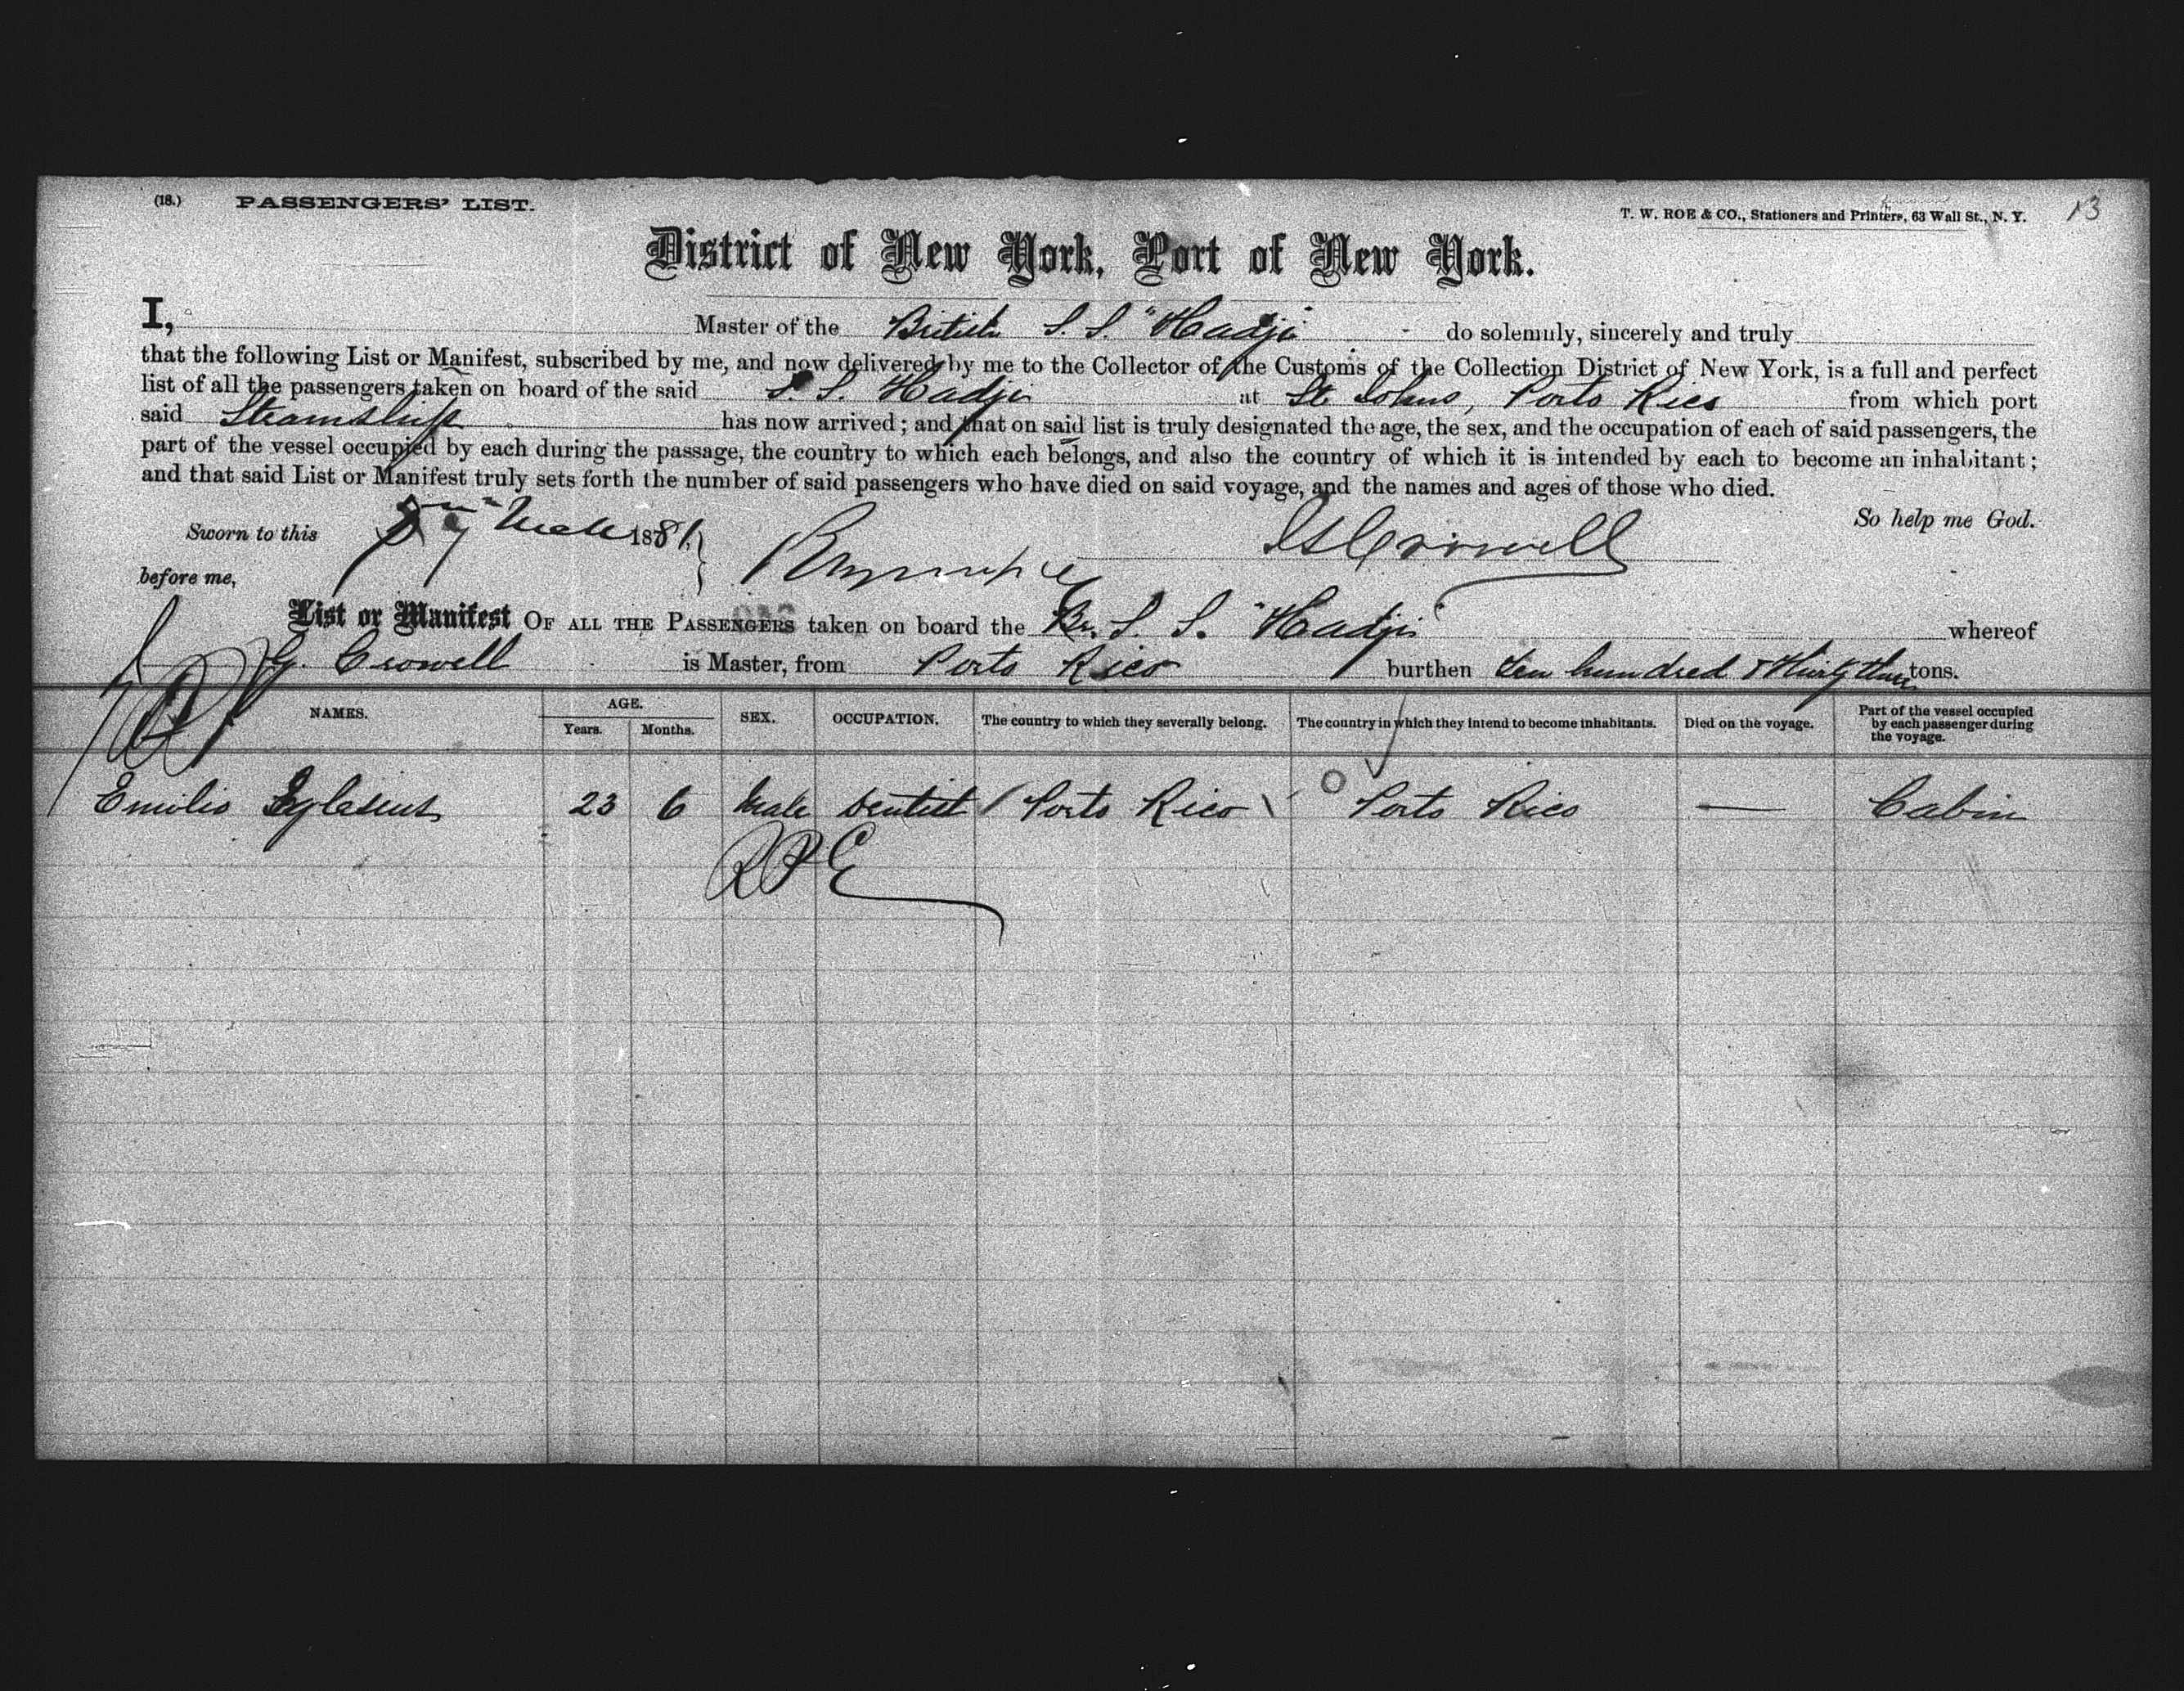 (18.) PASSENGERS' LIST.
T. W. ROE & CO., Stationers and Printers, 63 Wall St., N. Y. 13
District of New York, Port of New York.
I, Master of the British S. S. "Hadji" do solemnly, sincerely and truly
that the following List or Manifest, subscribed by me, and now delivered by me to the Collector of the Customs of the Collection District of New York, is a full and perfect
list of all the passengers taken on board of the said S. S. Hadji at St Johns, Porto Rico from which port
said Steamship has now arrived; and that on said list is truly designated the age, the sex, and the occupation of each of said passengers, the
part of the vessel occupied by each during the passage, the country to which each belongs, and also the country of which it is intended by each to become an inhabitant;
and that said List or Manifest truly sets forth the number of said passengers who have died on said voyage, and the names and ages of those who died.
So help me God.
Sworn to this 1881 Crowell
before me,
List or Manifest OF ALL THE PASSENGERS taken on board the Br. S. S. "Hadji" whereof
G. Crowell is Master, from Porto Rico burthen ten hundred & thirty three tons.
NAMES. AGE. Years. Months. SEX. OCCUPATION. The country to which they severally belong. The country in which they intend to become inhabitants. Died on the voyage. Part of the vessel occupied by each passenger during the voyage.
Emilio 23 6 Male Dentist Porto Rico Porto Rico — Cabin